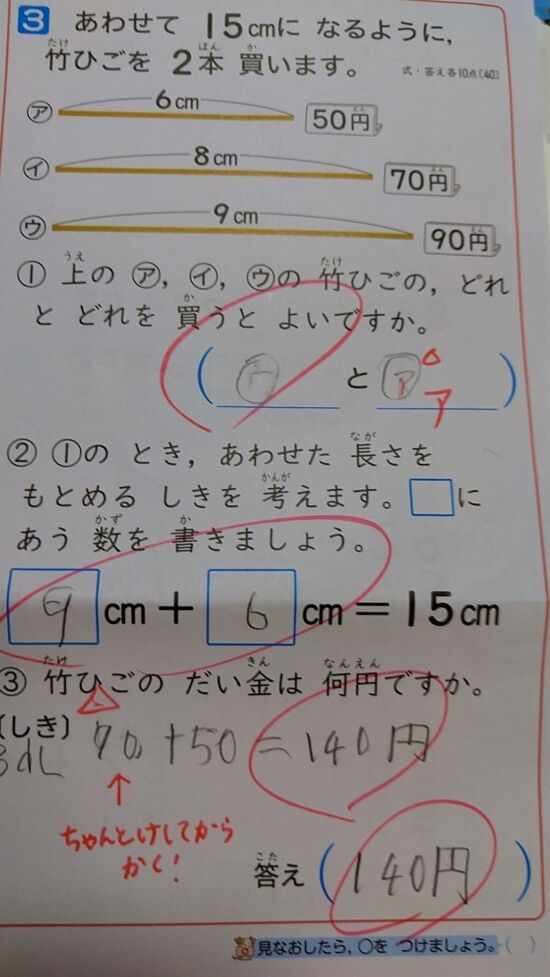 3 あわせて 15cmに なるように,
竹ひごを 2本 買います。
式・答え各10点〔40〕
㋐ 6cm 50円
㋑ 8cm 70円
㋒ 9cm 90円
① 上の ㋐, ㋑, ㋒の 竹ひごの, どれ
と どれを 買うと よいですか。
( ㋒ と ㋐ )
ア
② ①の とき, あわせた 長さを
もとめる しきを 考えます。□に
あう 数を 書きましょう。
9 cm + 6 cm = 15cm
③ 竹ひごの だい金は 何円ですか。
(しき) 90+50=140円
ちゃんとけしてから
かく!
答え ( 140円 )
見なおしたら, ○を つけましょう。( )